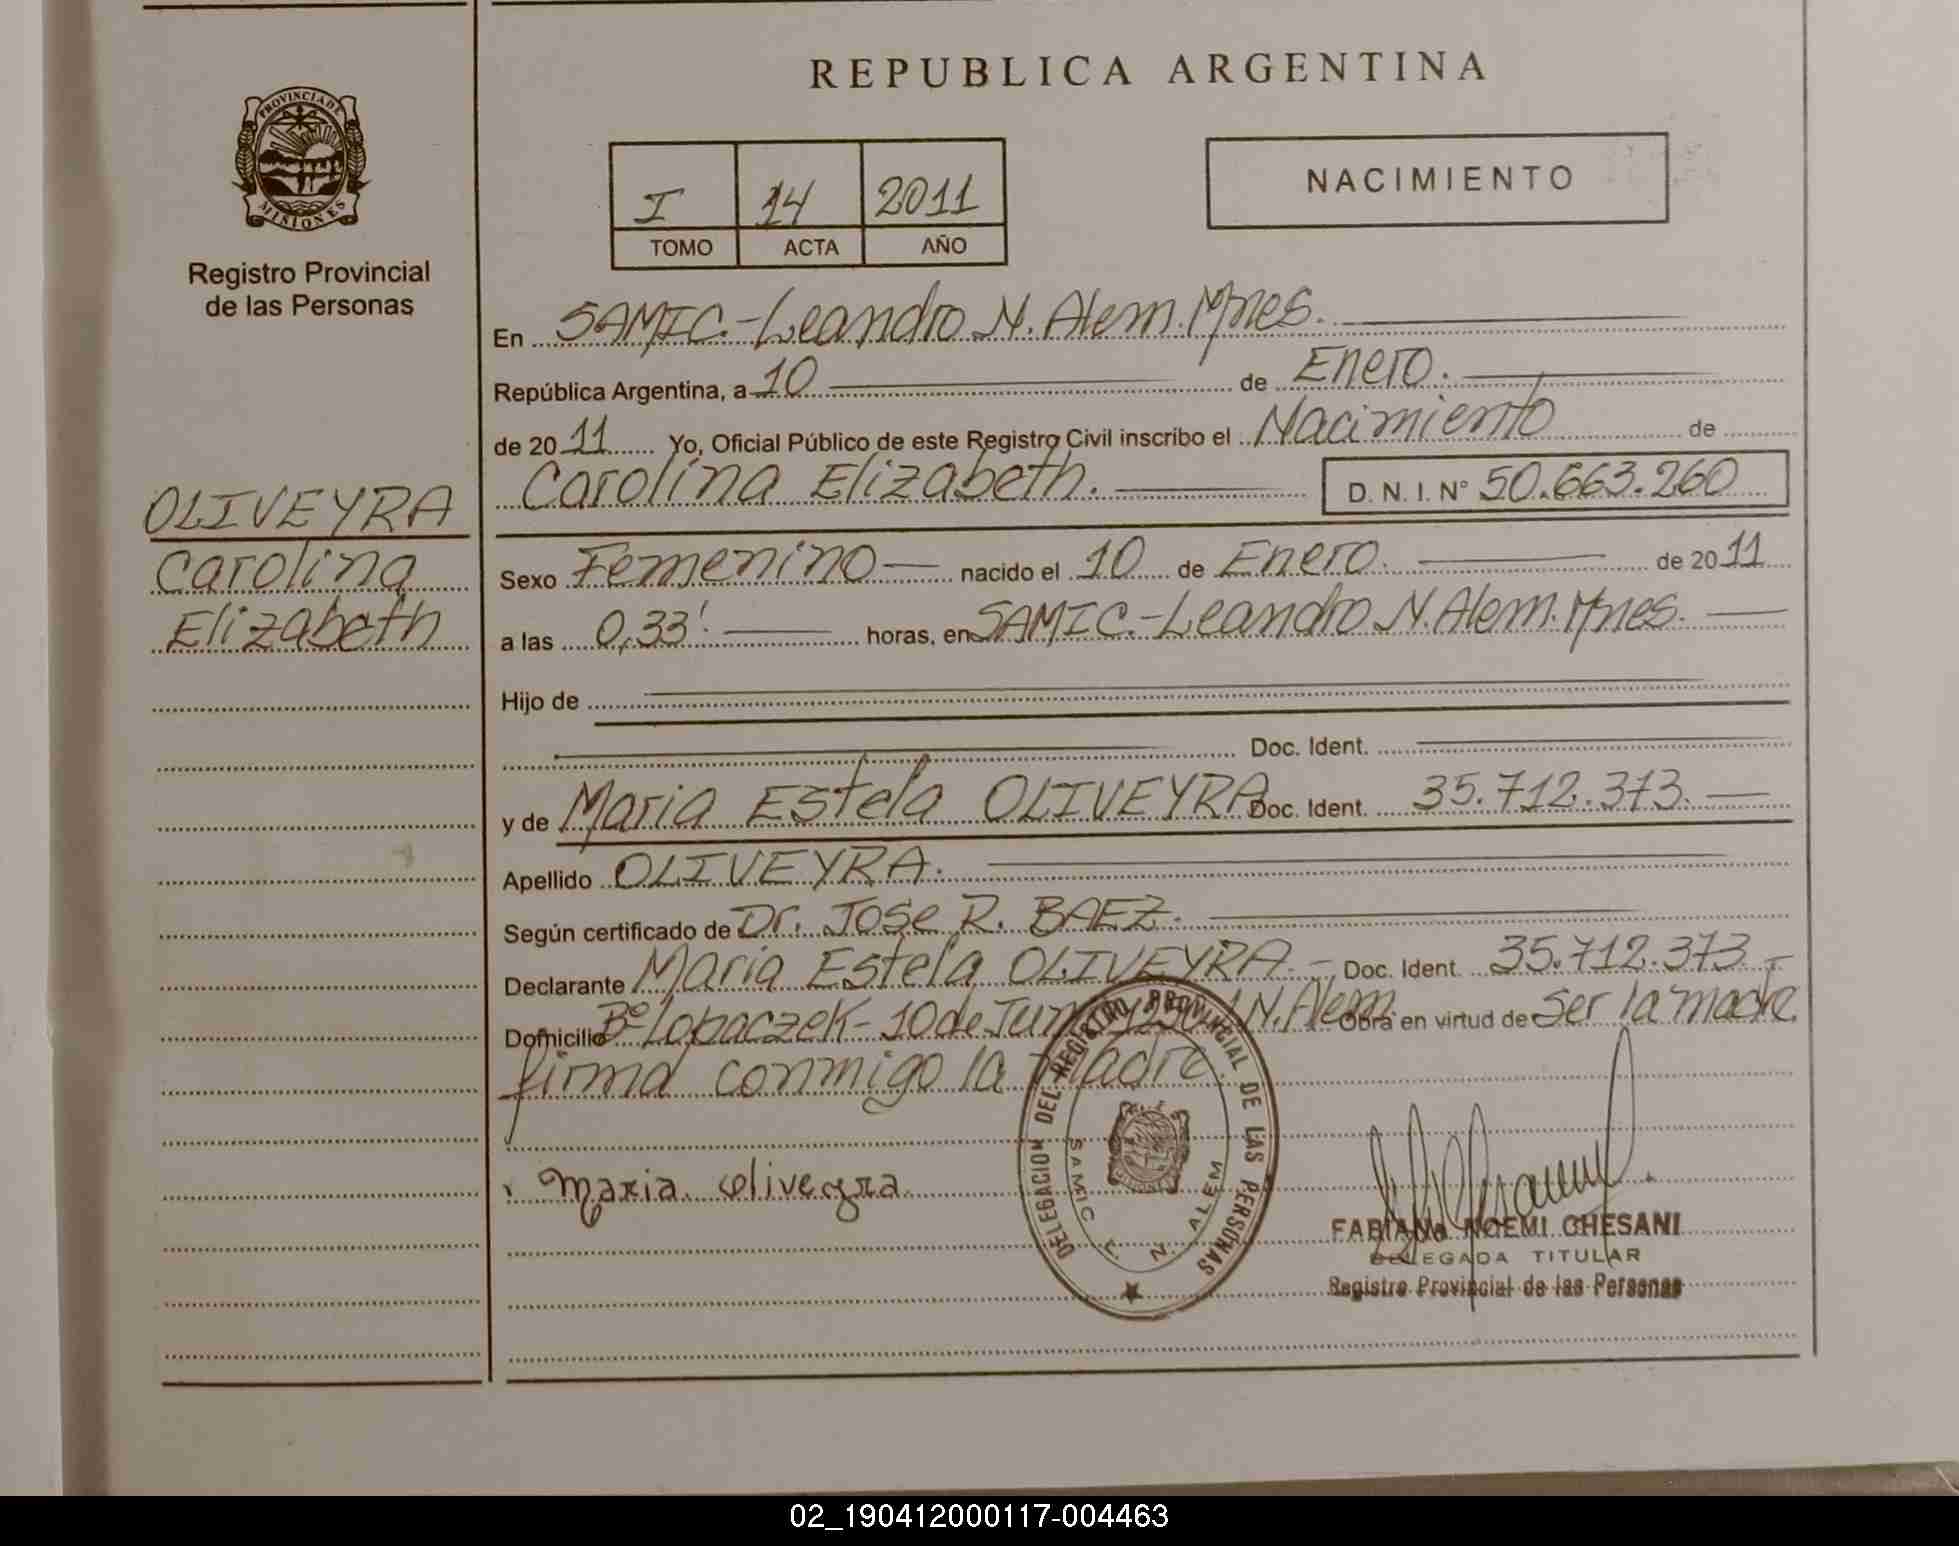 REPUBLICA ARGENTINA
PROVINCIA DE
MISIONES
Registro Provincial
de las Personas
I 14 2011
TOMO ACTA AÑO
NACIMIENTO
En SAMIC.-Leandro N. Alem. Mnes.
República Argentina, a 10 de Enero.
de 2011 Yo, Oficial Público de este Registro Civil inscribo el Nacimiento de
Carolina Elizabeth. D. N. I. N° 50.663.260
OLIVEYRA
Carolina
Elizabeth
Sexo Femenino nacido el 10 de Enero. de 2011
a las 0,33'. horas, en SAMIC.-Leandro N. Alem. Mnes.
Hijo de
Doc. Ident.
y de Maria Estela OLIVEYRA Doc. Ident. 35.712.373.
Apellido OLIVEYRA.
Según certificado de Dr. Jose R. BAEZ.
Declarante Maria Estela OLIVEYRA.- Doc. Ident. 35.712.373
Domicilio B° Lopaczek-10 de N. Alem Obra en virtud de Ser la madre
firma conmigo la madre.
Maria Oliveyra
DELEGACION DEL REGISTRO PROVINCIAL DE LAS PERSONAS
SAMIC L. N. ALEM
FABIANA NOEMI GHESANI
DELEGADA TITULAR
Registro Provincial de las Personas
02_190412000117-004463